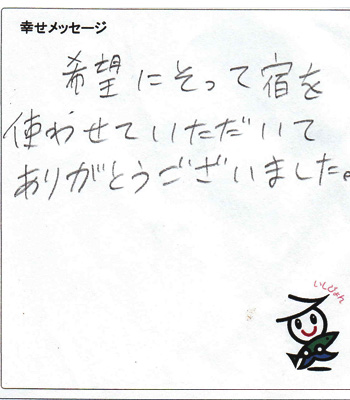 幸せメッセージ
希望にそって宿を
使わせていただいて
ありがとうございました。
いしぴょん